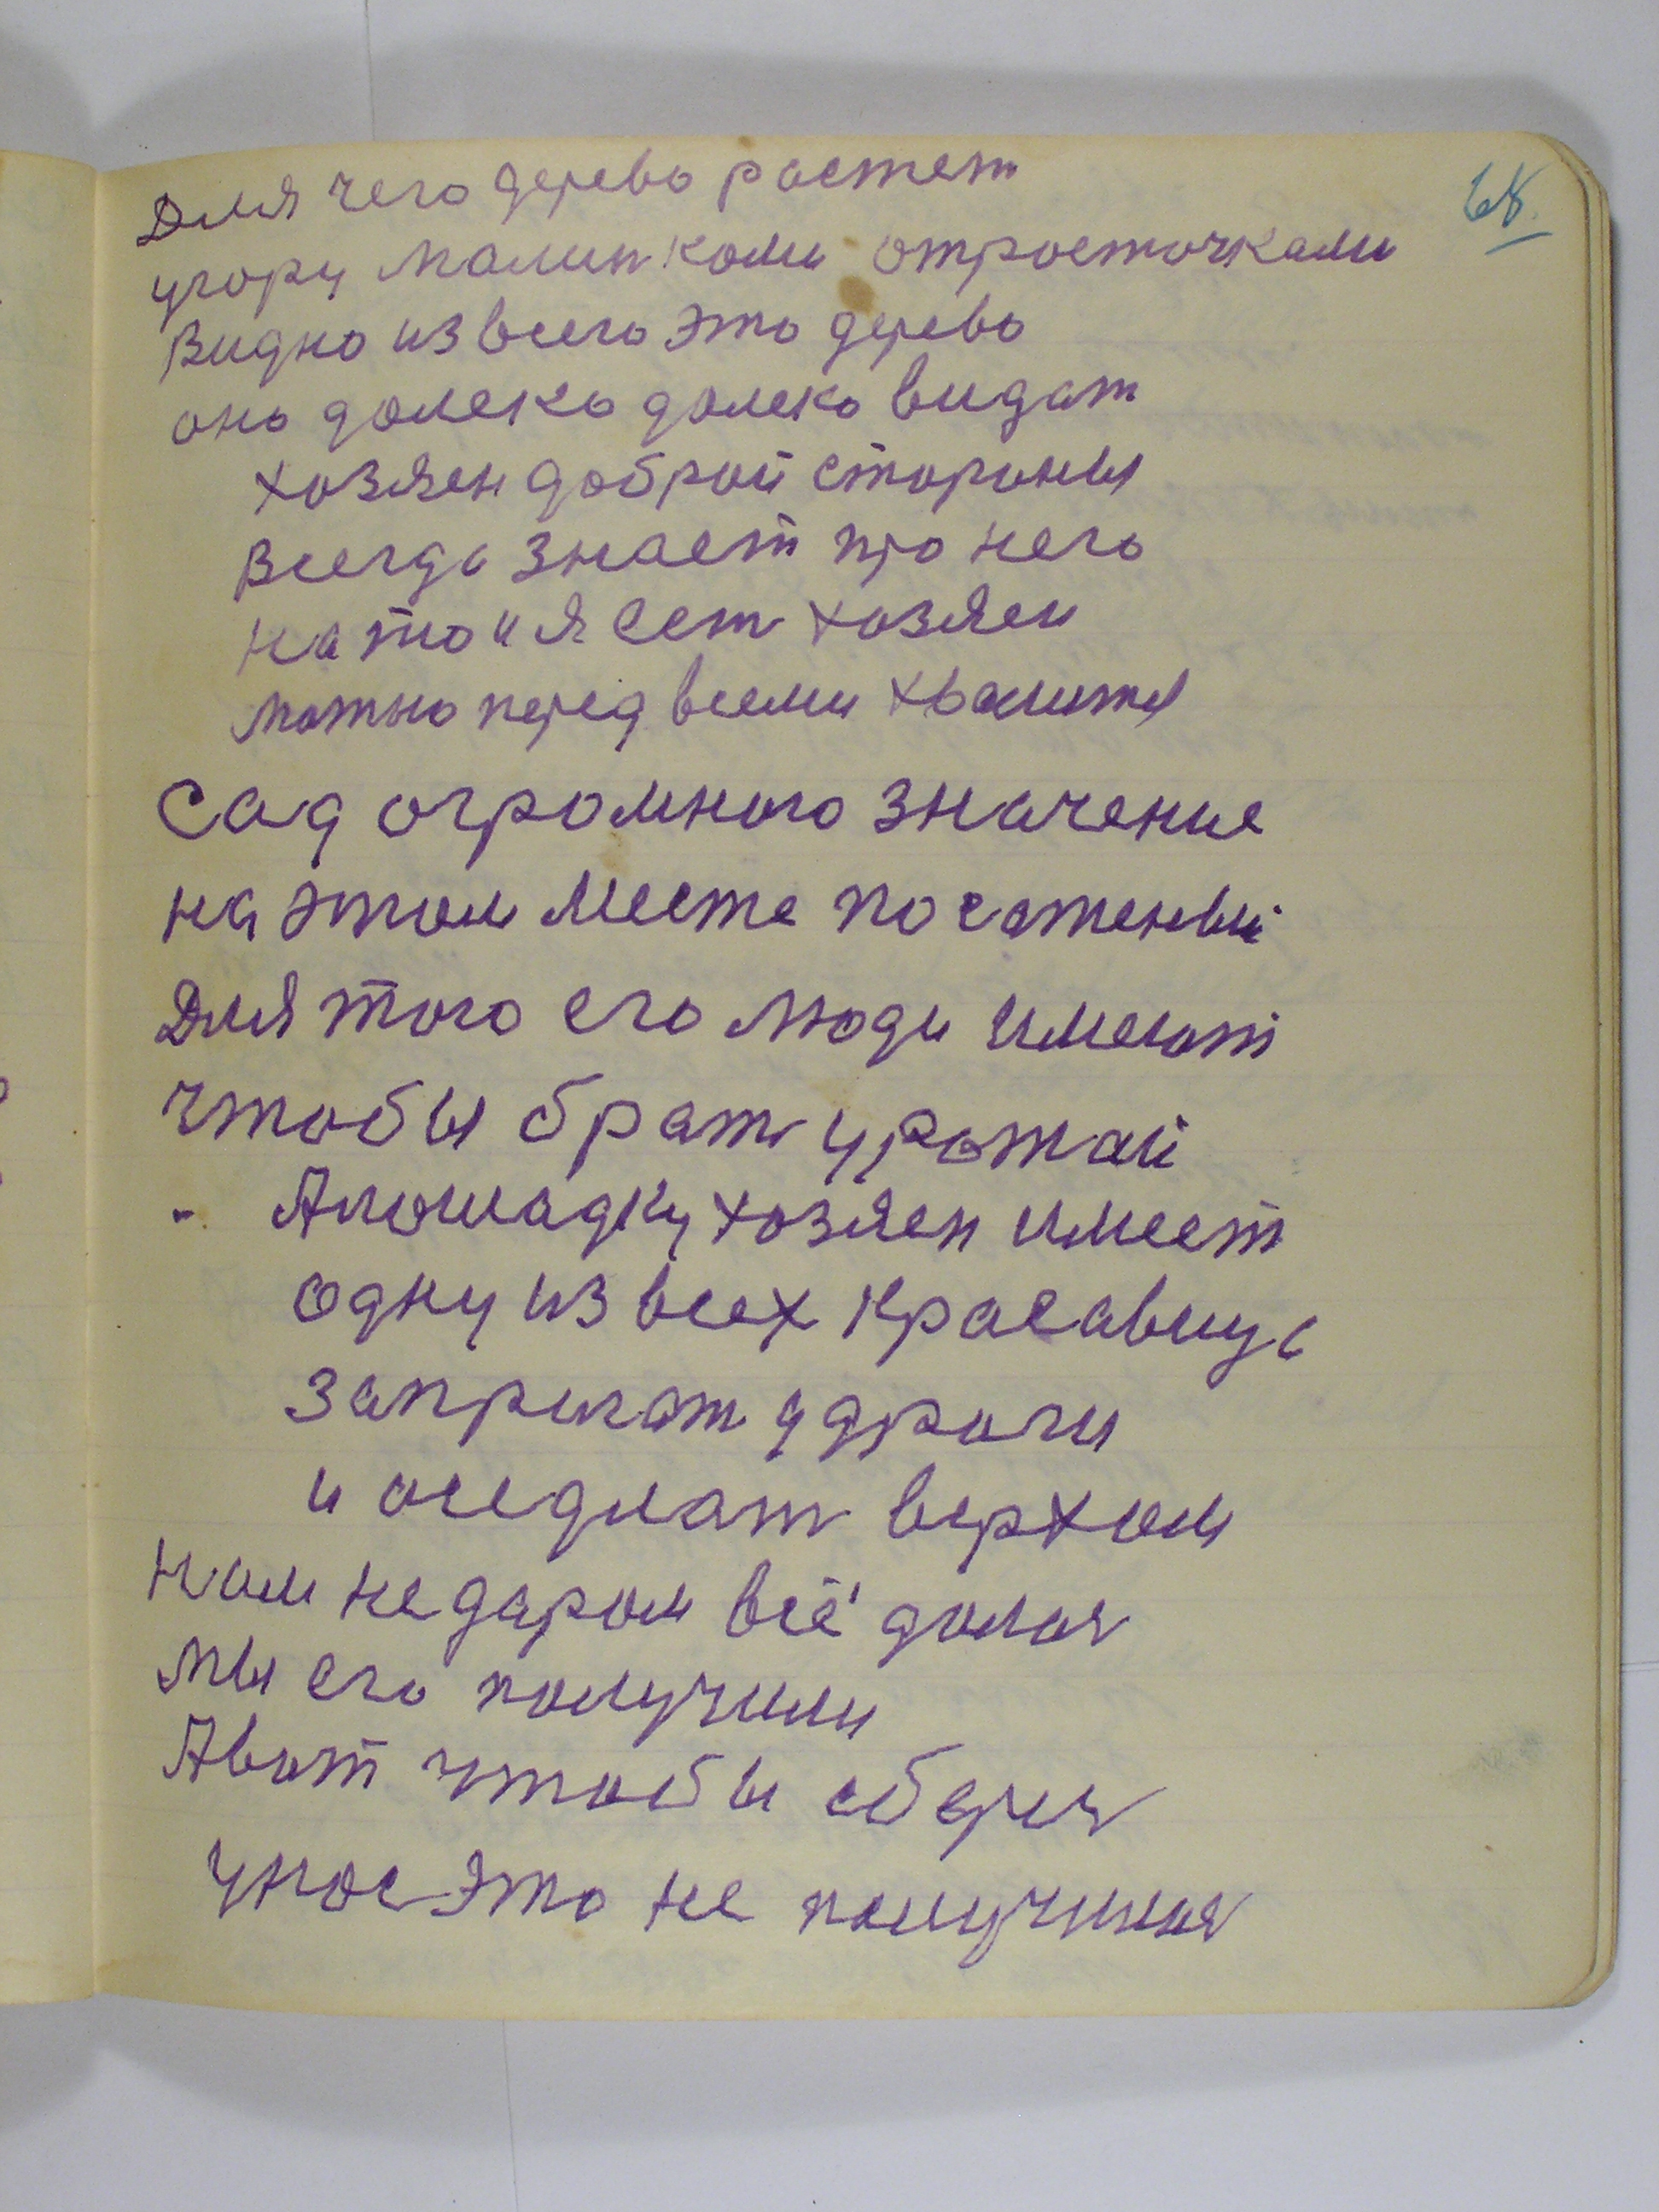 68.
Для чего дерево растет
угору малинками отросточками
Видно из всего это дерево
оно далеко далеко видат
хозяен доброй стороны
Всегда знает про него
на то и я Сет хозяен
мотно перед всеми хвалится
Сад огромного значение
на этом месте посатеный
Для того его люди имеют
чтобы брат уротай
- Алошадку хозяен имеет
одну из всех красавица
запригат удроги
и оседлат верхом
нам не даром всё далос
мы его получили
Авот чтобы сберич
унас это не получилос